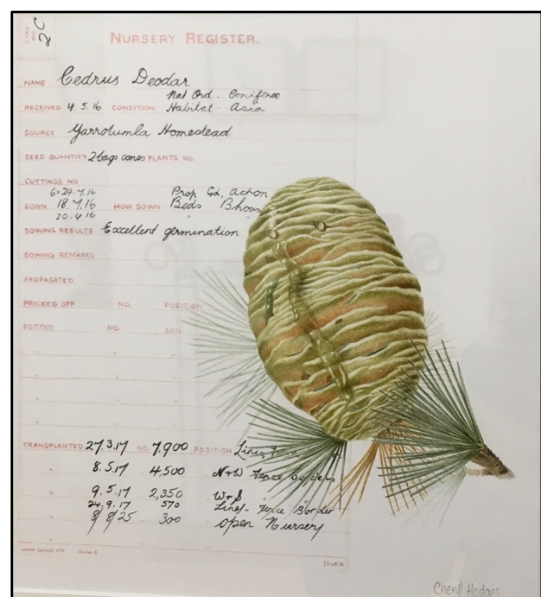 CARD NO. 2C
NURSERY REGISTER.
NAME Cedrus Deodar
Nat Ord. Coniferae
RECEIVED 4.5.16 CONDITION Habitat - Asia
SOURCE Yarrolumla Homestead
SEED QUANTITY 2 bags cones PLANTS NO.
CUTTINGS NO
6-24.7.16 Prop Gd, Acton
SOWN 18.7.16 HOW SOWN Beds Bhous
20.4.16
SOWING RESULTS Excellent germination
SOWING REMARKS
PROPAGATED
PRICKED OFF NO. POSITION
POTTED NO. SIZE
TRANSPLANTED 27.3.17 NO. 7,900 POSITION Lines
8.5.17 4,500 N+W Fence borders
9.5.17 2,350 W+S
24.9.17 570 Lines - Fence Border
8/8/25 300 open Nursery
Cheryl Hodges